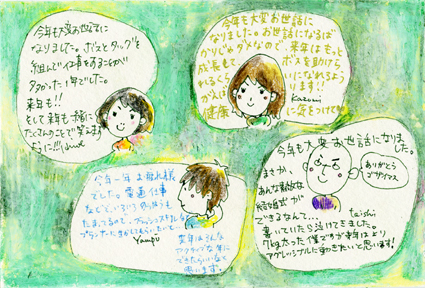 今年も大変お世話に
なりました。ボスとタッグを
組んで仕事をすることが
1年でした。
来年も!!
そして来年も一緒に
たくさんのことで笑えます
ように!!!
今年も大変お世話に
なりました。お世話になるば
かりじゃダメなので、来年はもっと
成長して ボスを助けら
れるくらいになれるよう
がんばります!!
健康に気をつけて
Kazumi
今年一年お疲れ様
でした。普通仕事
などといろいろ
プランナーに
Yamaji
来年はそんな
アクティブな年に
できたらいいなと
思います。
今年も大変お世話になりました。
まさか、
あんな素敵な
結婚式が
できるなんて...
書いていたら泣けてきました。
7kg太った僕ですが来年はより
アグレッシブルに動きたいと思います!
taishi
ありがとう
ゴザイマス